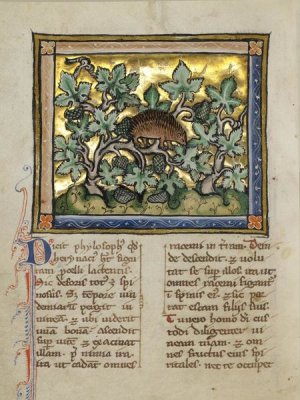 Dicit phylosoph⁹ q̄d
heynaci⁹ h̄t figu
ram porcelli lactentis.
Sic deforis tot⁹ ē spi
nosus. Sꝫ tempore uin
demiarū pergit in
uineā. ⁊ ubi uiderit
uuam bonā. ascendit
sup̄ uitē. ⁊ exacinat
illam. ita
ut cadāt omnes
racemi in t̄ram. Dein
de descendit. ⁊ uolu
tat se sup̄ illos ita ut
omnes racemi figant̄
ī spinis ei⁹. ⁊ sic por
tat escam filiis suis.
Tu uero homo dī cus
todi diligenter ui
neam tuam. ⁊ om
nes fructus ei⁹ spi
ritales. ne te occupet